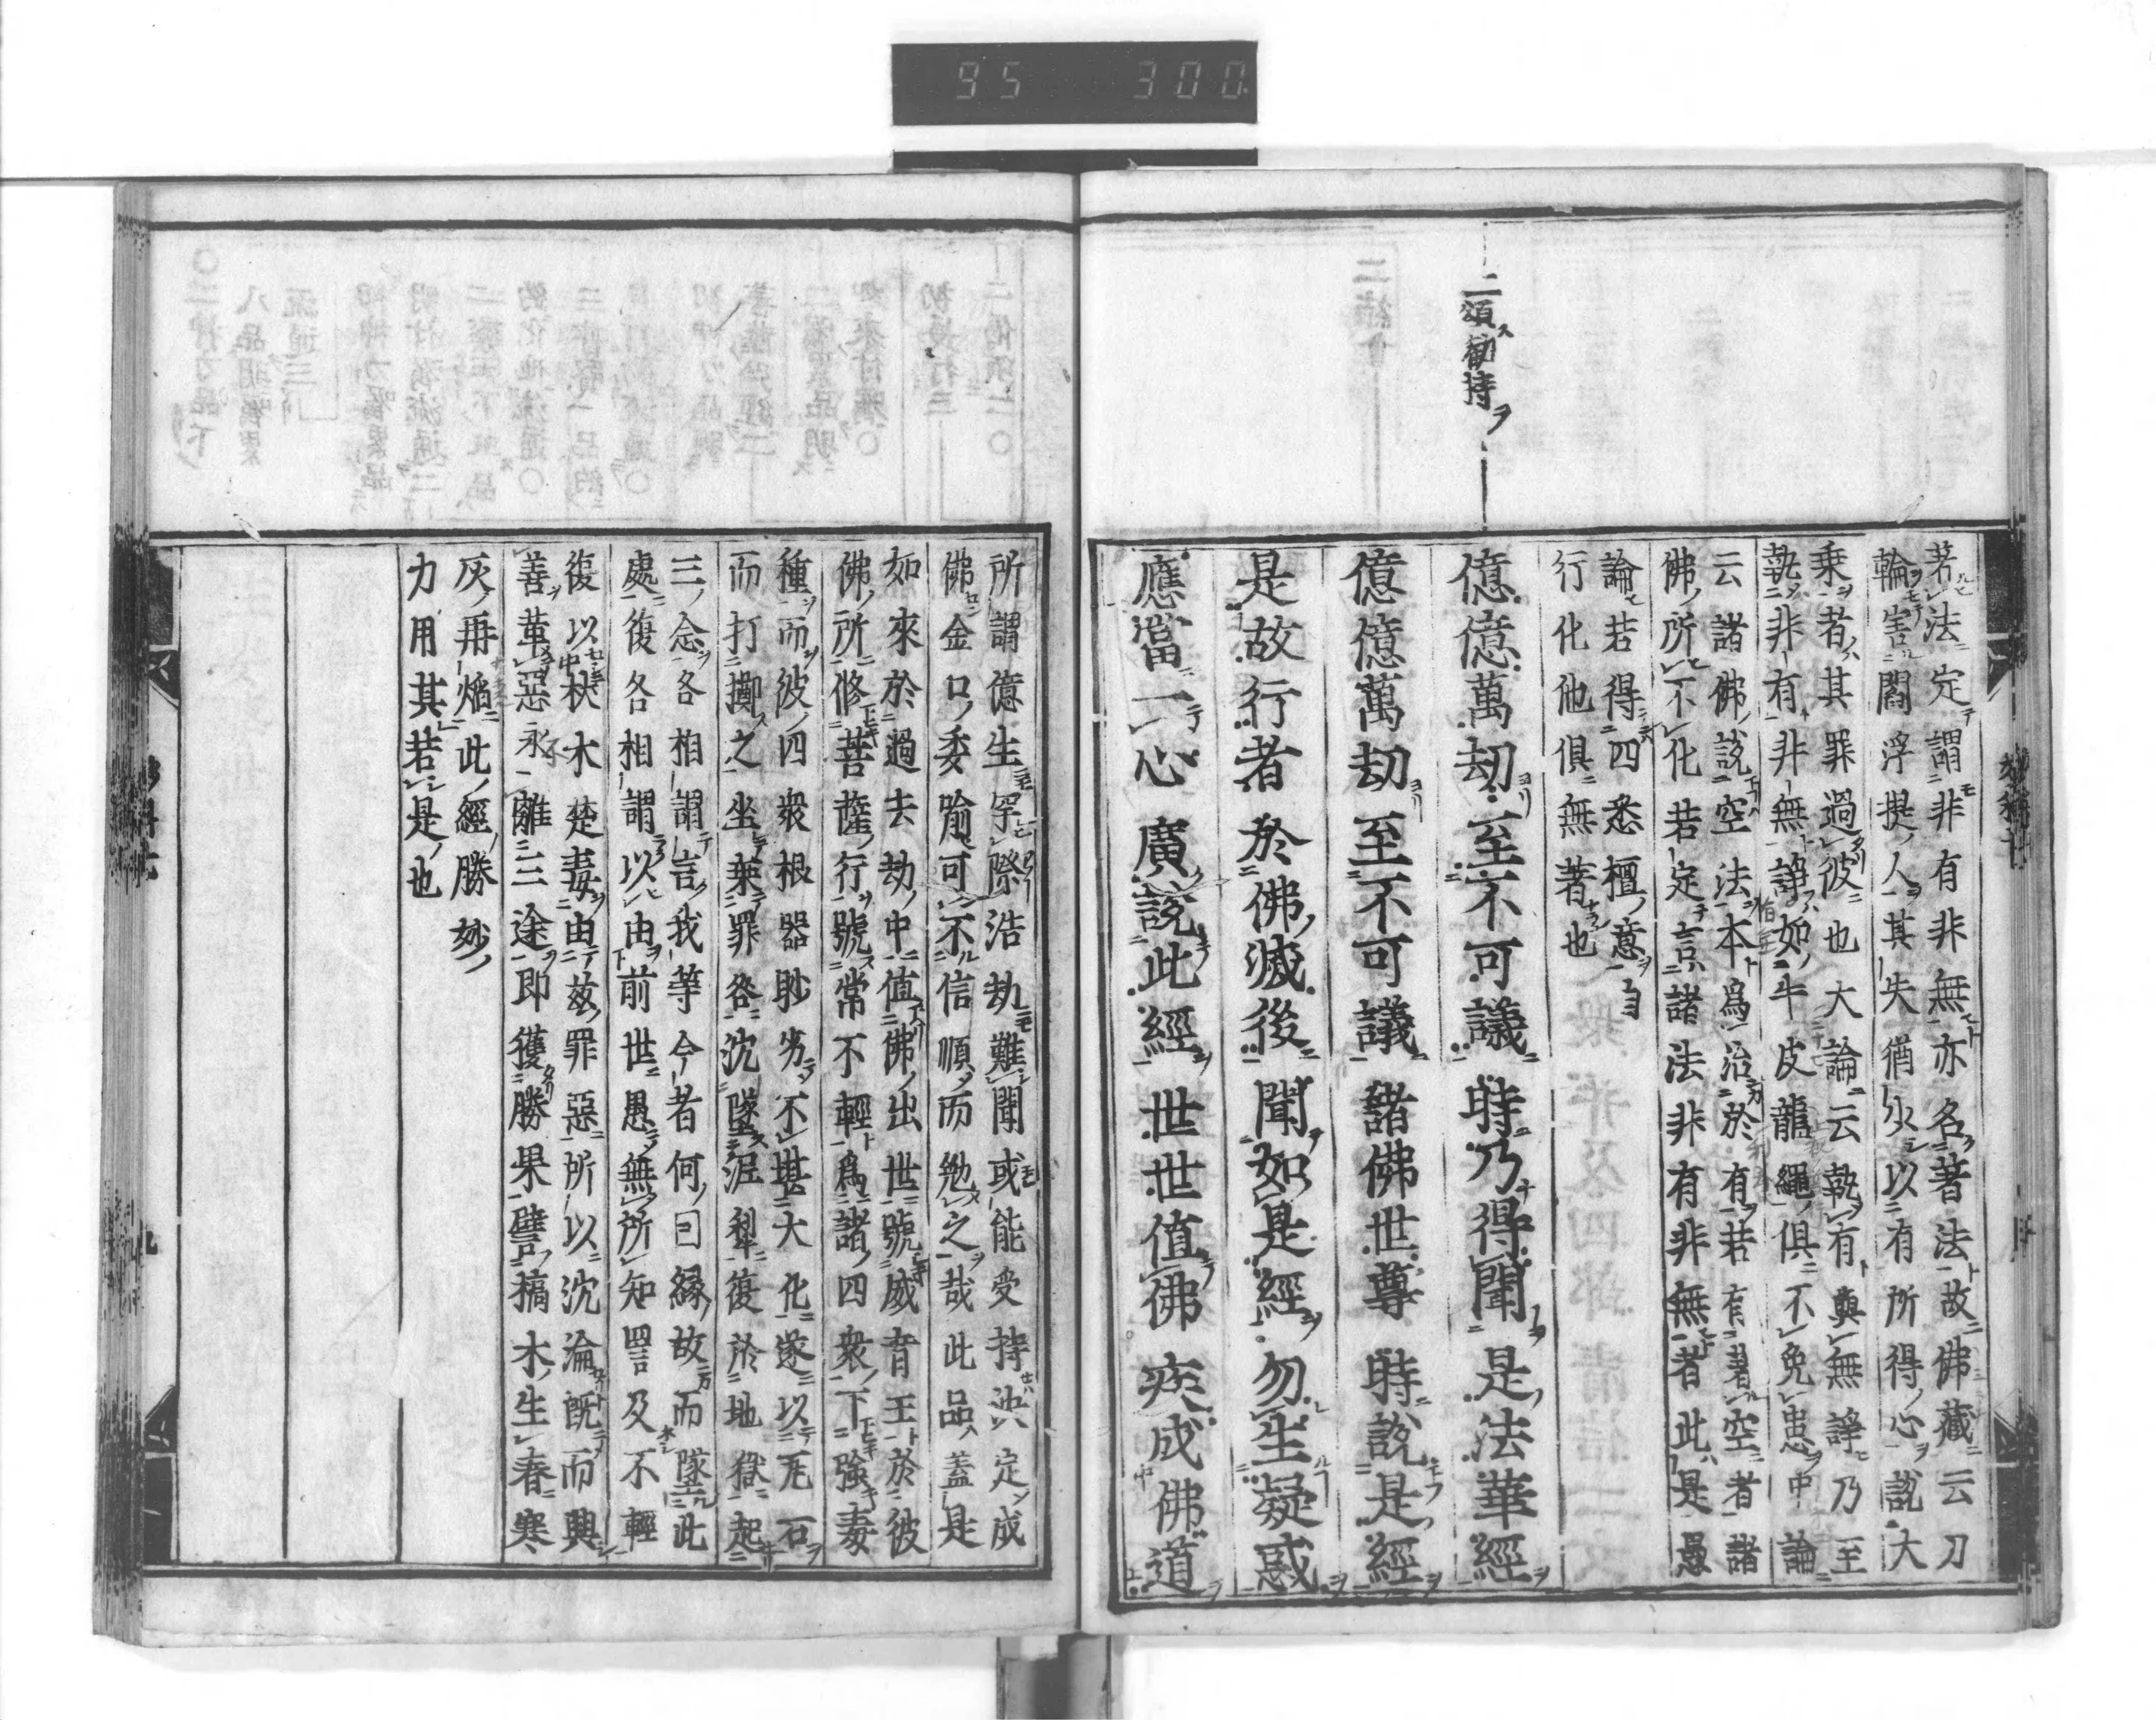 95 300
二頌勸持
著法定謂非有非無亦名著法故佛藏云刀
輪害閻浮提人其失猶少以有所得心說大
乗者其罪過彼也大論云執有與無諍乃至
執非有非無諍如牛皮龍繩俱不免患中論
云諸佛說空法本爲治於有若有著空者諸
佛所不化若定言諸法非有非無者此是愚
論若得四悉檀意自
行化他俱無著也
億億萬劫至不可議時乃得聞是法華經
億億萬劫至不可議諸佛世尊時說是經
是故行者於佛滅後聞如是經勿生疑惑
應當一心廣說此經世世值佛疾成佛道
所謂億生罕際浩劫難聞或能受持決定成
佛金口委喩可不信順而勉之哉此品蓋是
如來於過去劫中值佛出世號威音王於彼
佛所修菩薩行號常不輕爲諸四衆下強毒
種而彼四衆根器眇劣不堪大化遂以瓦石
而打擲之坐業罪咎沈墜泥犁復於地獄起
三念各相謂言我等今者何因緣故而墜此
處復各相謂以由前世愚無所知詈及不輕
復以杖木楚毒由茲罪惡所以沈淪旣而興
善革惡永離三途即獲勝果譬槁木生春寒
灰再焔此經勝妙
力用其若是也